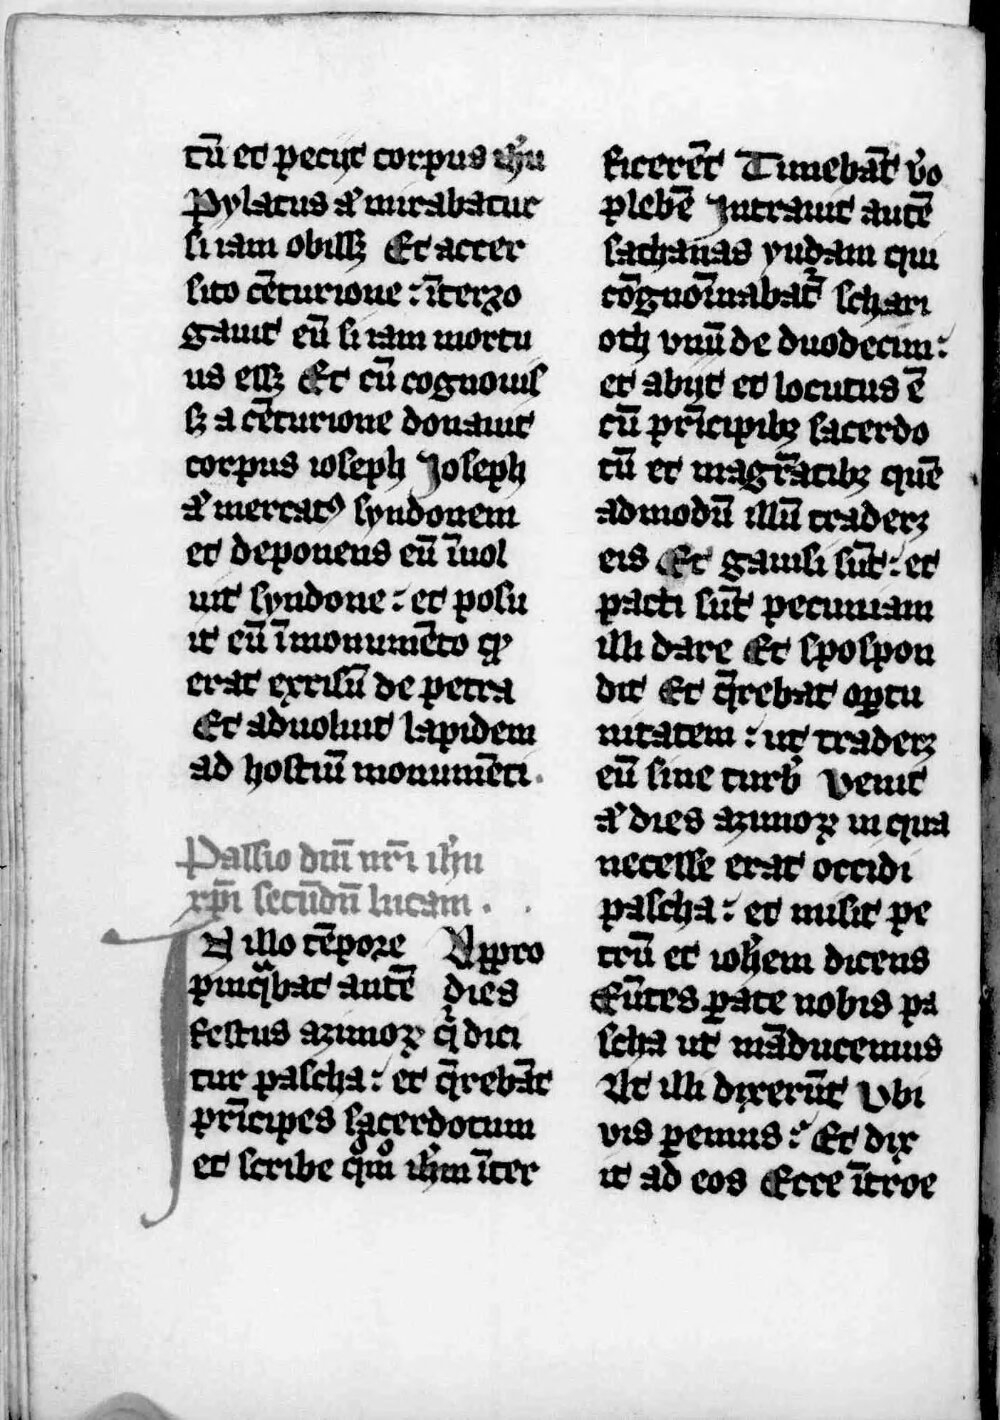 tū et pecijt corpus ih̄u
Pylatus aͧ mirabatur
si iam obissꝫ Et accer
sito cēturione : īterro
gauit eū si iam mortu
us essꝫ Et cū cognouis
sꝫ a cēturione donauit
corpus ioseph Joseph
aͧ mercatꝰ syndonem
et deponens eū īuol
uit syndone : et posu
it eū ī monumēto qͩ
erat excisū de petra
Et aduoluit lapidem
ad hostiū monumēti .
Passio dn̄i nr̄i ih̄u
xp̄i secūdū lucam .
In illo tēpore Appro
pinqͣbat autē dies
festus azimoꝝ qͥ dici
tur pascha : et q̄rebāt
prīcipes sacerdotum
et scribe qͦmͦ ih̄m īter
ficerēt Timebāt v̊o
plebē Jntrauit autē
sathanas yudam qui
cōgnoīabat᷑ schari
oth vnū de duodecim :
et abijt et locutus ē
cū prīcipibꝫ sacerdo
tū et magr̄atibꝫ quē
admodū illū traderꝫ
eis Et gauisi sūt : et
pacti sūt pecuniam
illi dare Et spospon
dit Et q̄rebat oꝑtu
nitatem : ut traderꝫ
eū sine turb̾ Venit
aͧ dies azimoꝝ in qua
necesse erat occidi
pascha : et misit pe
trū et ioh̄em dicens
Eūtes ꝑate nobis pa
scha ut māducemus
At illi dixerūt Vbi
vis ꝑemus : Et dix
it ad eos Ecce ītroe